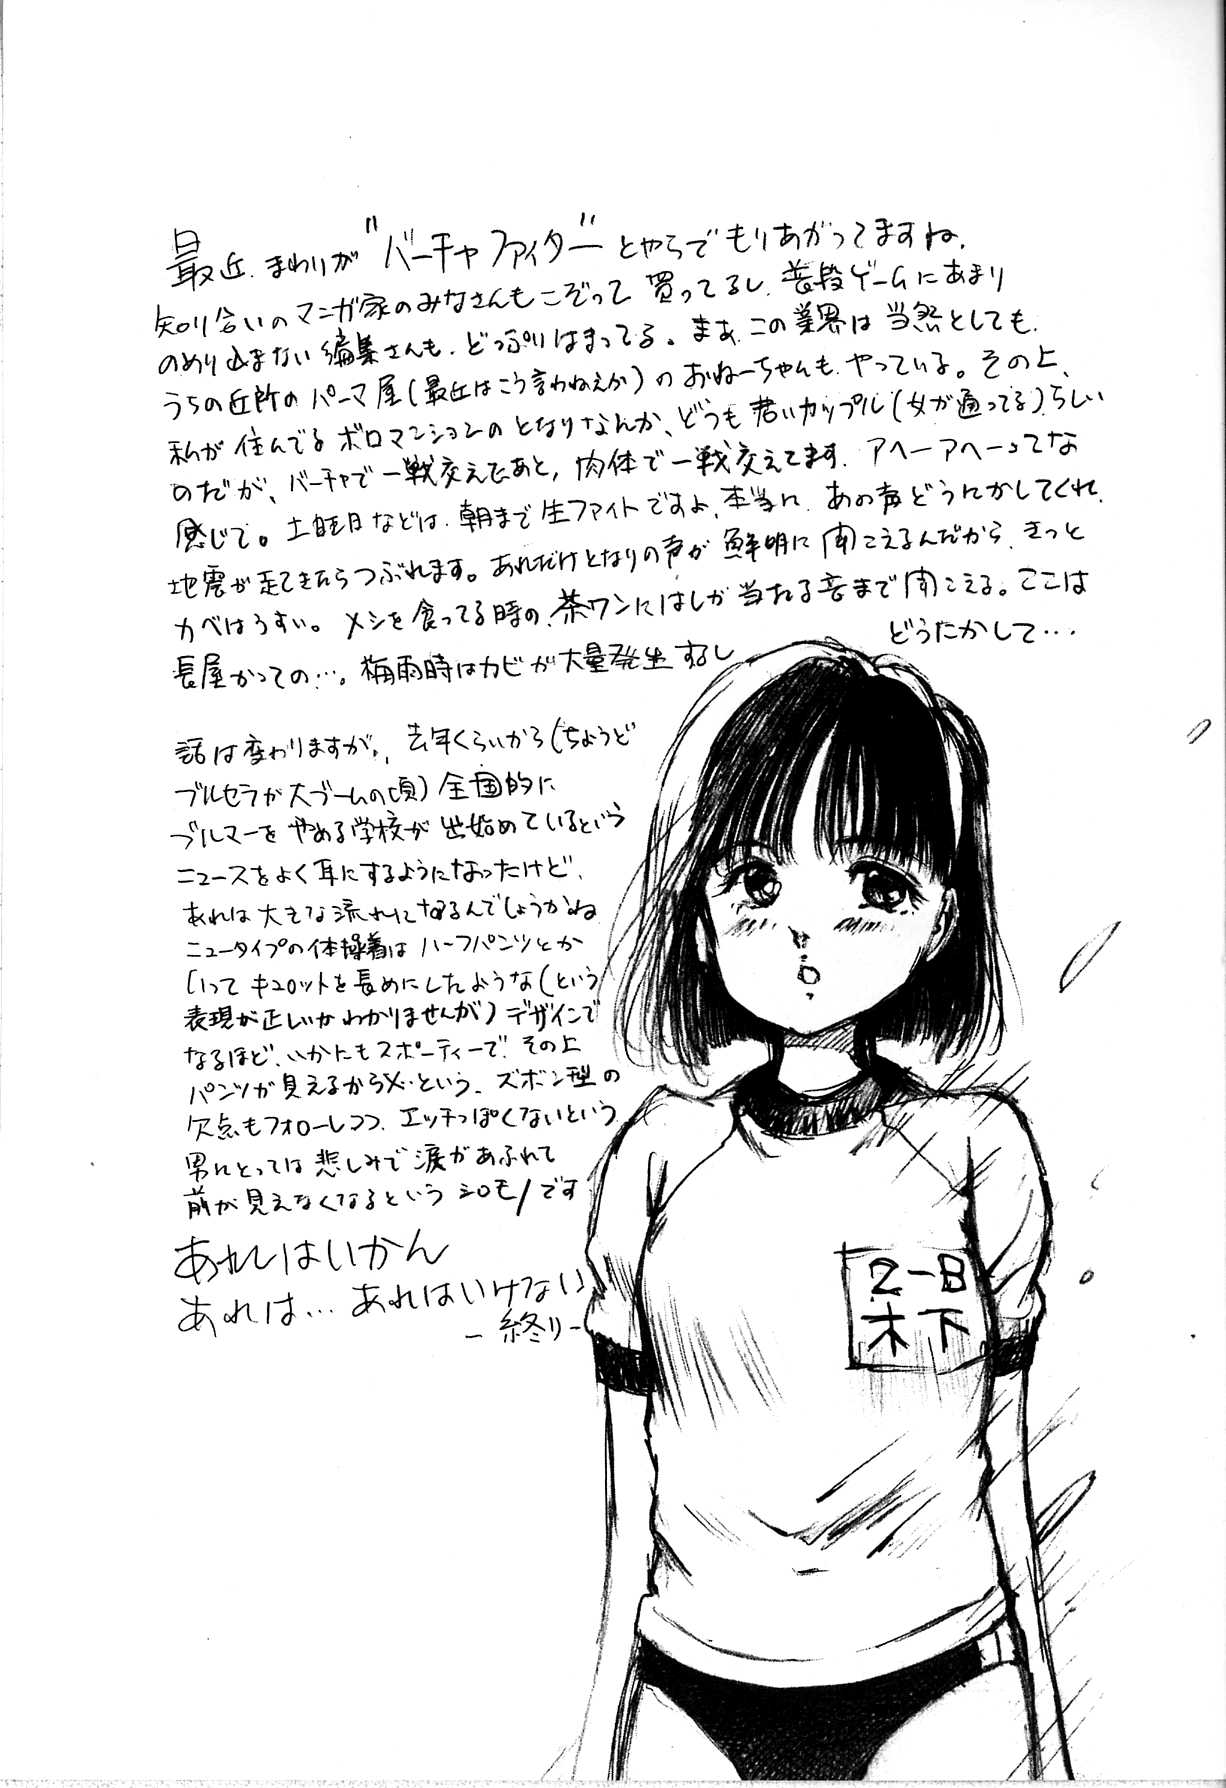 最近、まわりが"バーチャファイター"とやらでもりあがってますね。
知り合いのマンガ家のみなさんもこぞって買ってるし、普段ゲームにあまり
のめり込まない編集さんも、どっぷりはまってる。まあ、この業界は当然としても、
うちの近所のパーマ屋(最近はこう言わねえか)のおねーちゃんも、やっている。その上、
私が住んでるボロマンションのとなりなんか、どうも若いカップル(女が通ってる)らしい
のだが、バーチャで一戦交えたあと、肉体で一戦交えてます。アヘーアヘーってな
感じで。土曜日などは、朝まで生ファイトですよ、本当に。あの声どうにかしてくれ。
地震が起きたらつぶれます。あれだけとなりの声が鮮明に聞こえるんだから、きっと
カベはうすい。メシを食ってる時の、茶ワンにはしが当たる音まで聞こえる。ここは
長屋かっての…。梅雨時はカビが大量発生するし
どうたかして…
話は変わりますが、去年くらいから(ちょうど
ブルセラが大ブームの頃)全国的に
ブルマーをやめる学校が出始めているという
ニュースをよく耳にするようになったけど、
あれは大きな流れになるんでしょうかね
ニュータイプの体操着はハーフパンツとか
いってキュロットを長めにしたような(という
表現が正しいかわかりませんが)デザインで
なるほど、いかにもスポーティーで、その上
パンツが見えるから×…という、ズボン型の
欠点もフォローしつつ、エッチっぽくないという
男にとっては悲しみで涙があふれて
前が見えなくなるというシロモノです
あれはいかん
あれは…あれはいけない
-終り-
2-B
木下